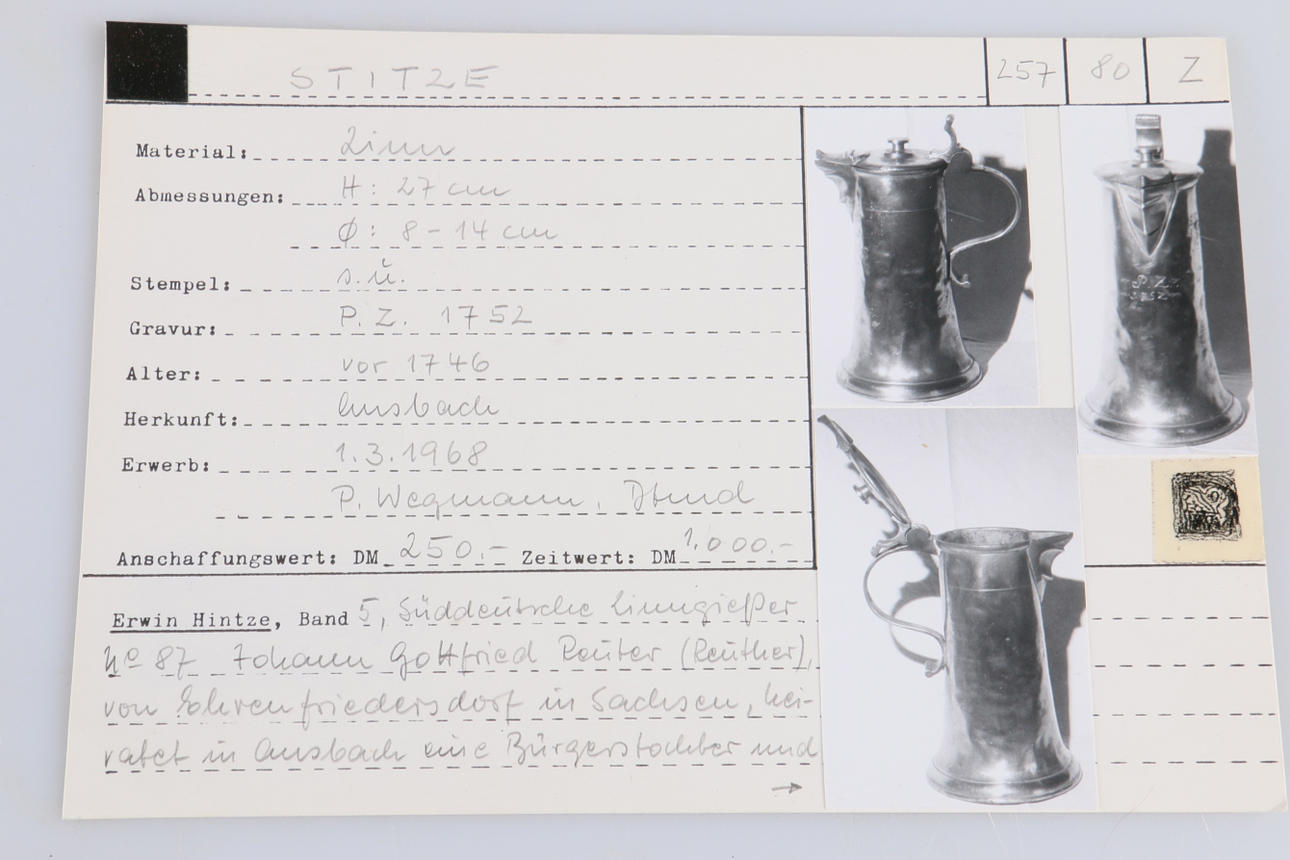 STITZE 257 80 Z
Material: Zinn
Abmessungen: H: 27 cm
Ø: 8 - 14 cm
Stempel: s.u.
Gravur: P. Z. 1752
Alter: vor 1746
Herkunft: Ansbach
Erwerb: 1.3.1968
P. Wegmann, Dtmd
Anschaffungswert: DM 250.- Zeitwert: DM 1.000.-
Erwin Hintze, Band 5, Süddeutsche Zinngießer
No 87 Johann Gottfried Reuter (Reuther),
von Ehrenfriedersdorf in Sachsen, hei-
ratet in Ansbach eine Bürgerstochter und
→
P. Z.
1752